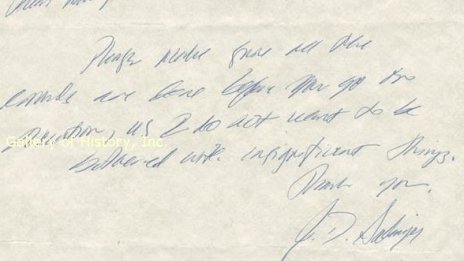 Please make sure all the
errands are done before you go on
vacation, as I do not want to be
bothered with insignificant things.
Thank you.
J. D. Salinger
Gallery of History, Inc.